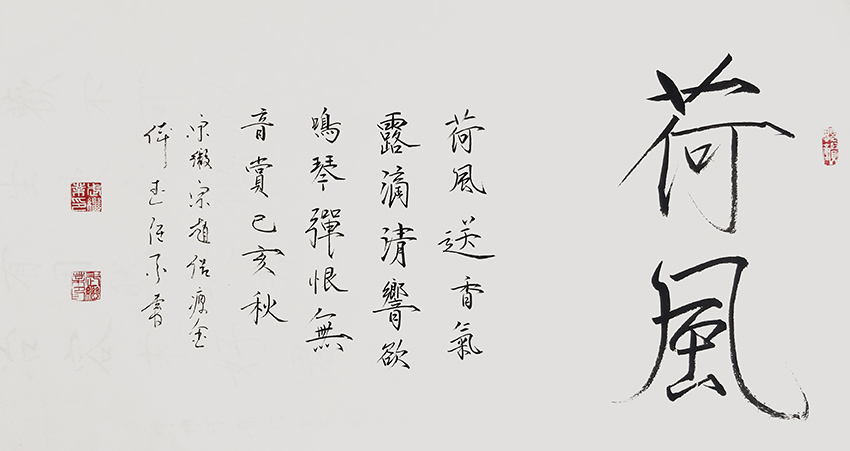 荷風
荷風送香氣
露滴清響欲
鳴琴彈恨無
音賞己亥秋
宋徽宗趙佶瘦金
書